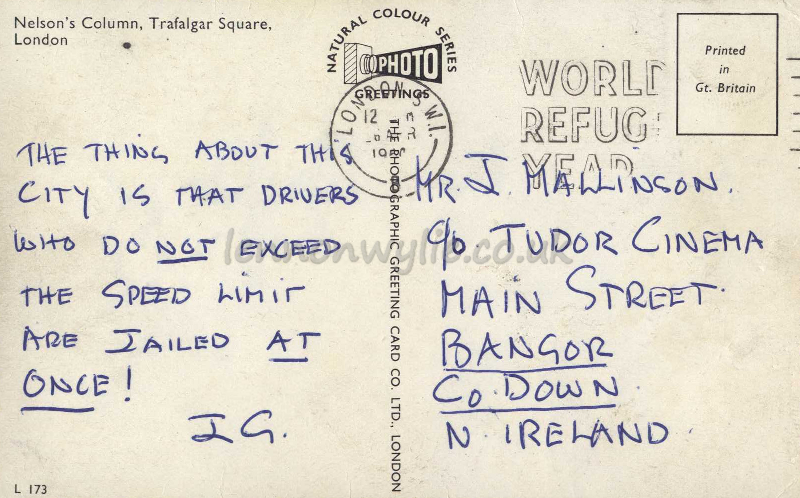 Nelson's Column, Trafalgar Square,
London
NATURAL COLOUR SERIES
PHOTO
GREETINGS
Printed
in
Gt. Britain
LONDON S.W.1.
12
WORLD
REFUG
YEAR
THE THING ABOUT THIS
CITY IS THAT DRIVERS
WHO DO NOT EXCEED
THE SPEED LIMIT
ARE JAILED AT
ONCE!
J G.
THE PHOTOGRAPHIC GREETING CARD CO. LTD., LONDON
MR. J. MALLINSON.
c/o TUDOR CINEMA
MAIN STREET.
BANGOR
Co. DOWN.
N. IRELAND
lennonwylie.co.uk
L 173